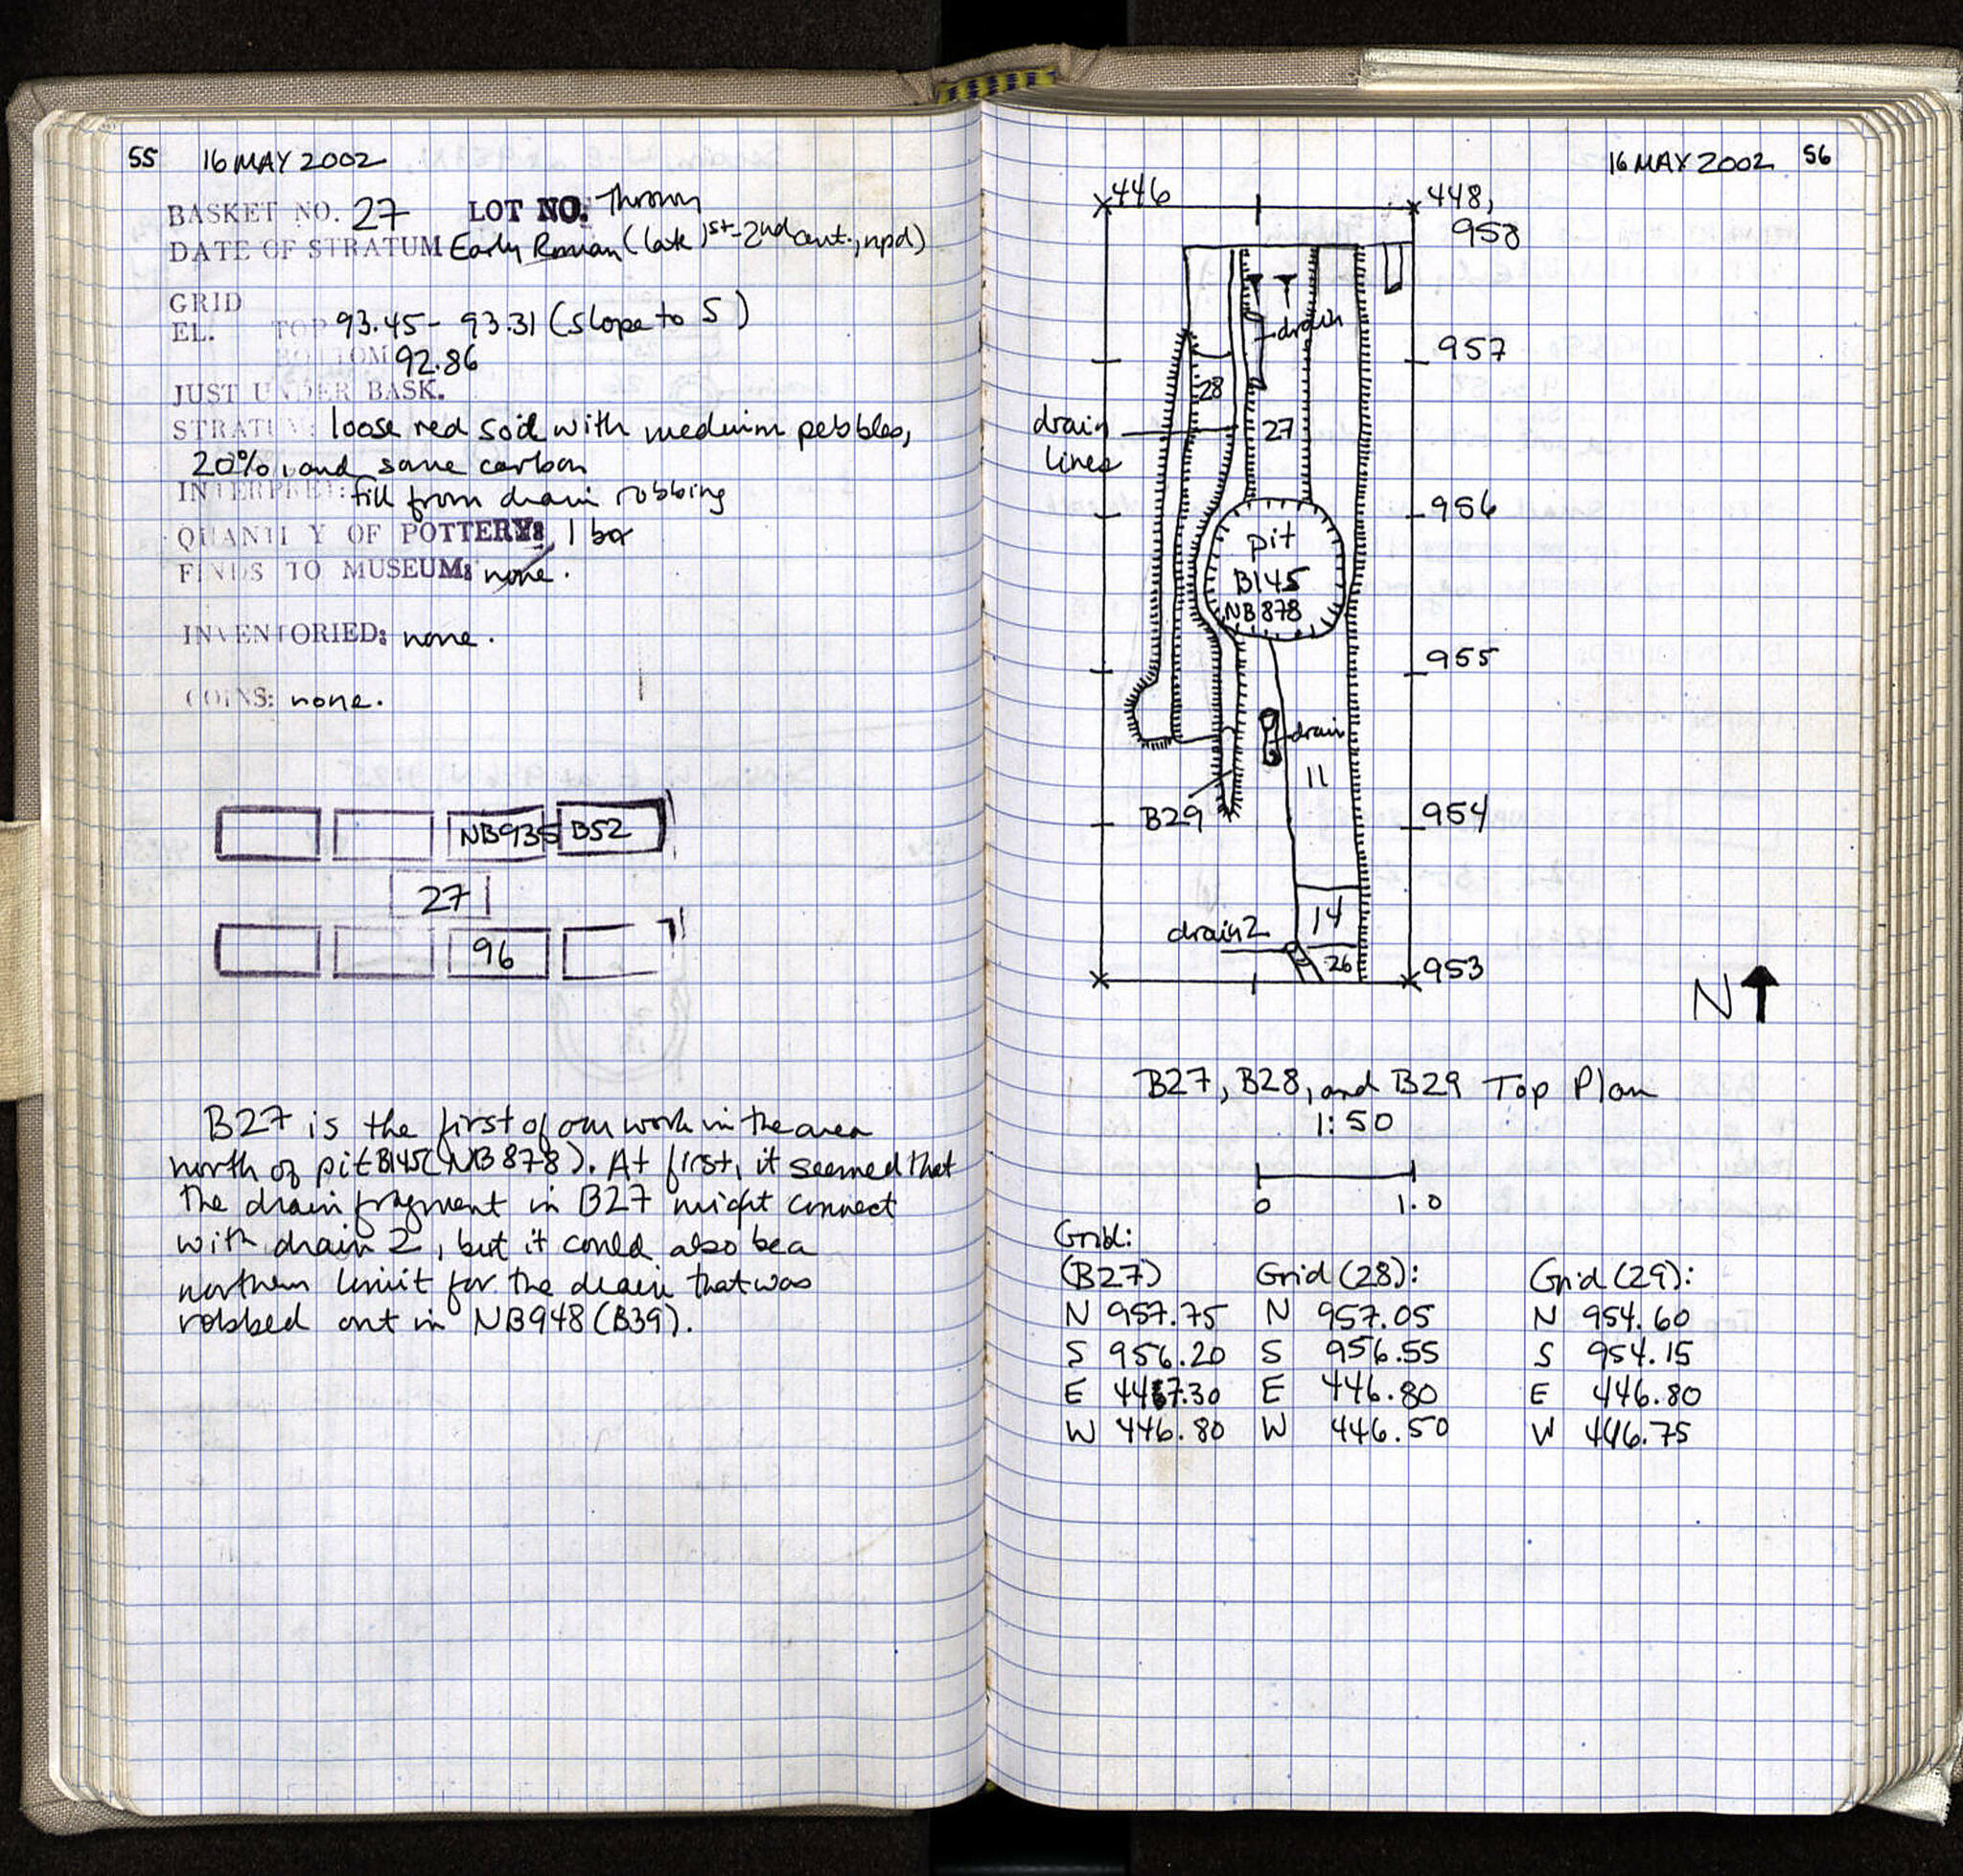 55 16 MAY 2002
BASKET NO. 27 LOT NO. Thrown
DATE OF STRATUM Early Roman (late 1st-2nd cent., npd)
GRID
EL. TOP 93.45 - 93.31 (slope to S)
BOTTOM 92.86
JUST UNDER BASK.
STRATUM: loose red soil with medium pebbles,
20%, and some carbon
INTERPRET: fill from drain robbing
QUANTITY OF POTTERY: 1 box
FINDS TO MUSEUM: none.
INVENTORIED: none.
COINS: none.
NB935 B52
27
96
B27 is the first of our work in the area
north of pit B145 (NB 878). At first, it seemed that
the drain fragment in B27 might connect
with drain 2, but it could also be a
northern limit for the drain that was
robbed out in NB948 (B39).
16 MAY 2002 56
446 448,
958
drain
957
28
drain
lines
27
956
pit
B145
NB878
955
drain
11
B29
954
14
drain2
26
953
N
B27, B28, and B29 Top Plan
1:50
0 1.0
Grid:
(B27) Grid (28): Grid (29):
N 957.75 N 957.05 N 954.60
S 956.20 S 956.55 S 954.15
E 447.30 E 446.80 E 446.80
W 446.80 W 446.50 W 446.75